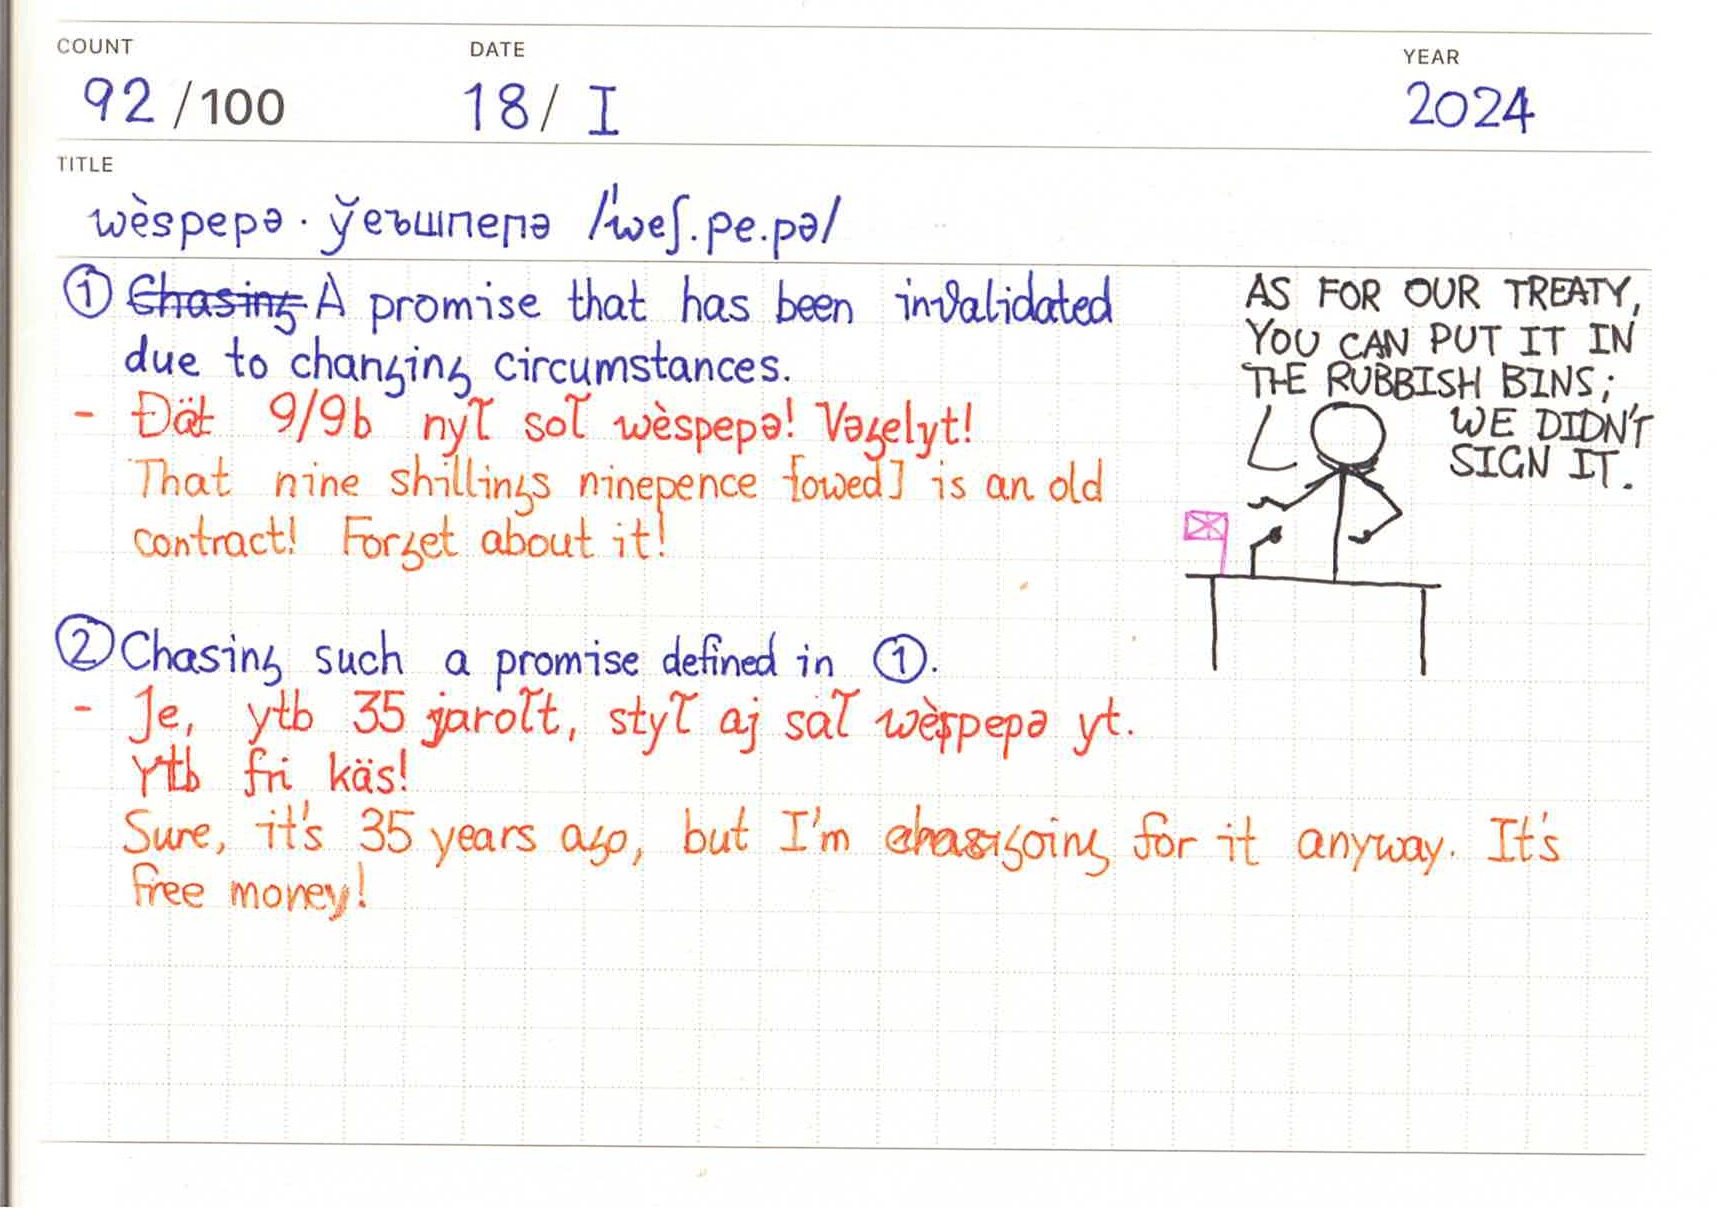 COUNT DATE YEAR
92 /100 18/ I 2024
TITLE
wèspepə · ўеъшпепә /ˈweʃ.pe.pə/
① Chasing A promise that has been invalidated
due to changing circumstances.
- Ðät 9/9b nyꞇ̃ soꞇ̃ wèspepə! Vəgelyt!
That nine shillings ninepence [owed] is an old
contract! Forget about it!
② Chasing such a promise defined in ①.
- Je, ytb 35 jaroꞇ̃t, styꞇ̃ aj säꞇ̃ wèspepə yt.
Ytb fri käs!
Sure, it's 35 years ago, but I'm going for it anyway. It's
free money!
AS FOR OUR TREATY,
YOU CAN PUT IT IN
THE RUBBISH BINS;
WE DIDN'T
SIGN IT.